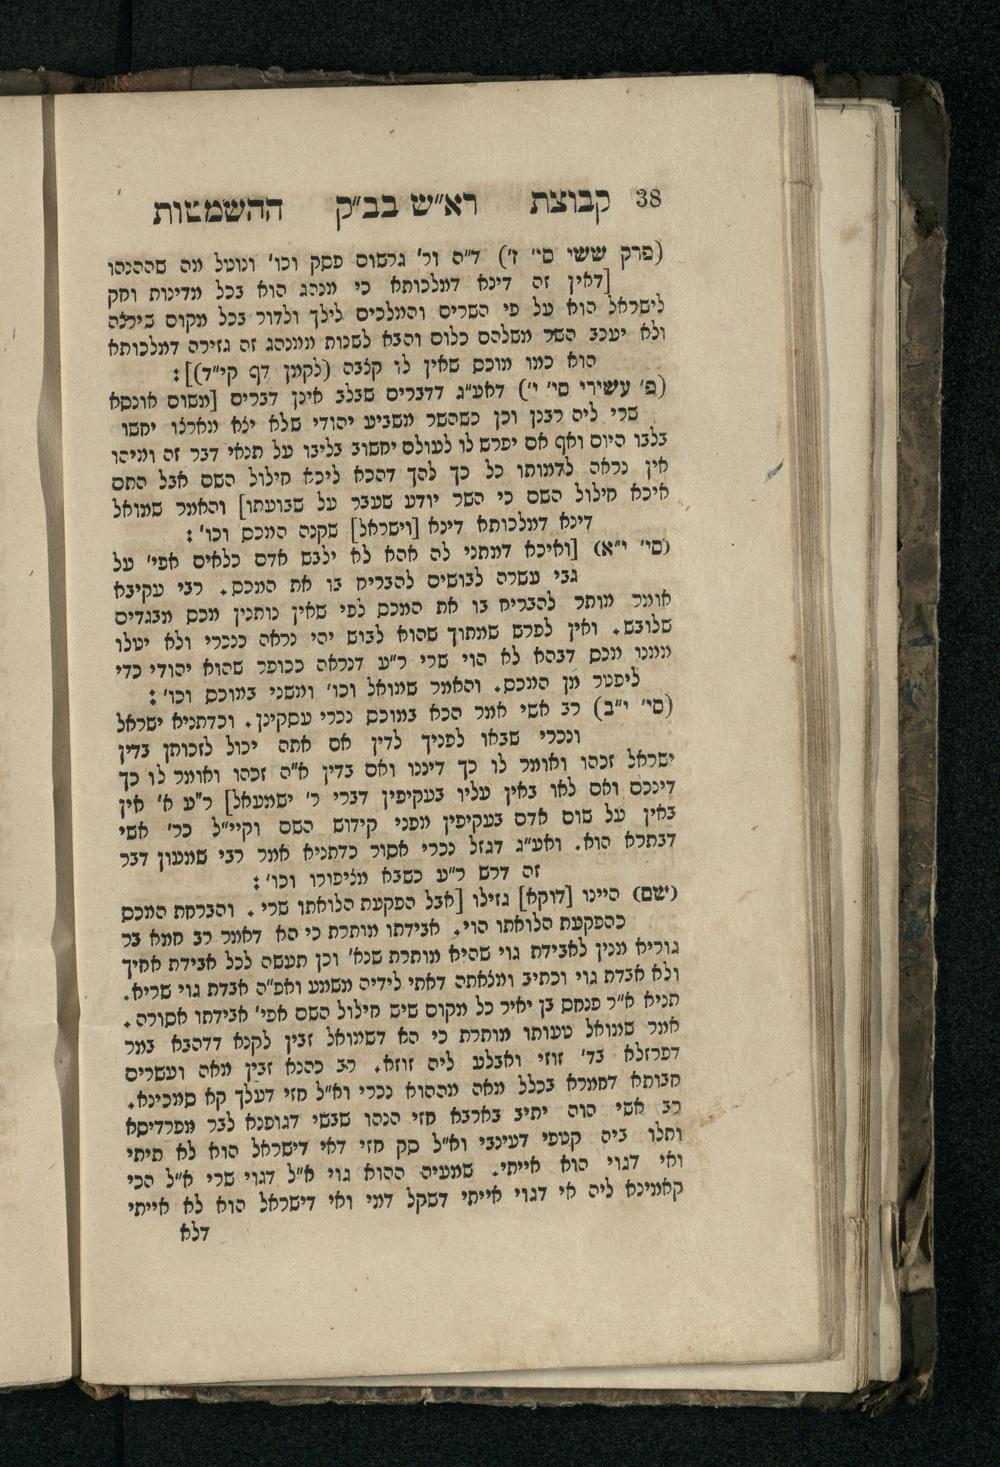 38 קבוצת רא״ש בב״ק ההשמטות
(פרק ששי סי׳ ז׳) ד״ה ור׳ גרשום פסק וכו׳ ונוטל מה שההנהו
[דאין זה דינא דמלכותא כי מנהג הוא בכל מדינות וחק
לישראל הוא על פי השרים והמלכים לילך ולדור בכל מקום שירצה
ולא יעכב השר משלהם כלום והבא לשנות ממנהג זה גזירה דמלכותא
הוא כמו מוכס שאין לו קצבה (לקמן דף קי״ד)]:
(פ׳ עשירי סי׳ י׳) דאע״ג דדברים שבלב אינן דברים [משום אונסא
שרי ליה רבנן וכן כשהשר משביע יהודי שלא יצא מארצו יחשו
בלבו היום ואף אם יפרש לו לעולם יחשוב בליבו על תנאי דבר זה ומיהו
אין נראה לדמותו כל כך להך דהכא ליכא חילול השם אבל התם
איכא חילול השם כי השר יודע שעבר על שבועתו] והאמר שמואל
דינא דמלכותא דינא [וישראל] שקנה המכס וכו׳:
(סי׳ י״א) [ואיכא דמתני לה אהא לא ילבש אדם כלאים אפי׳ על
גבי עשרה לבושים להבריח בו את המכס. רבי עקיבא
אומר מותר להבריח בו את המכס לפי שאין נותנין מכס מבגדים
שלובש. ואין לפרש שמתוך שהוא לבוש יהי נראה כנכרי ולא יטלו
ממנו מכס דבהא לא הוי שרי ר״ע דנראה ככופר שהוא יהודי כדי
ליפטר מן המכס. והאמר שמואל וכו׳ ומשני במוכס וכו׳:
(סי׳ י״ב) רב אשי אמר הכא במוכס נכרי עסקינן. וכדתניא ישראל
ונכרי שבאו לפניך לדין אם אתה יכול לזכותן בדין
ישראל זכהו ואומר לו כך דיננו ואם בדין א״ה זכהו ואומר לו כך
דינכם ואם לאו באין עליו בעקיפין דברי ר׳ ישמעאל] ר״ע א׳ אין
באין על שום אדם בעקיפין מפני קידוש השם וקיי״ל כר׳ אשי
דבתרא הוא. ואע״ג דגזל נכרי אסור כדתניא אמר רבי שמעון דבר
זה דרש ר״ע כשבא מציפורי וכו׳:
(שם) היינו [דוקא] גזילו [אבל הפקעת הלואתו שרי. והברחת המכס
כהפקעת הלואתו הוי. אבידתו מותרת כי הא דאמר רב חמא בר
גוריא מנין לאבידת גוי שהיא מותרת שנא׳ וכן תעשה לכל אבידת אחיך
ולא אבדת גוי וכתיב ומצאתה דאתי לידיה משמע ואפ״ה אבדת גוי שריא.
תניא א״ר פנחס בן יאיר כל מקום שיש חילול השם אפי׳ אבידתו אסורה.
אמר שמואל טעותו מותרת כי הא דשמואל זבין לקנא דדהבא במר
דפרזלא בד׳ זוזי ואבלע ליה זוזא. רב כהנא זבין מאה ועשרים
חבותא דחמרא בכלל מאה מההוא נכרי וא״ל חזי דעלך קא סמכינא.
רב אשי הוה יתיב באורחא חזי הנהו שבשי דגופנא לבר מפרדיסא
ותלו ביה קטפי דעינבי וא״ל סק חזי דאי דישראל הוא לא תיתי
ואי דגוי הוא אייתי. שמעיה ההוא גוי א״ל דגוי שרי א״ל הכי
קאמינא ליה אי דגוי אייתי דשקל דמי ואי דישראל הוא לא אייתי
דלא